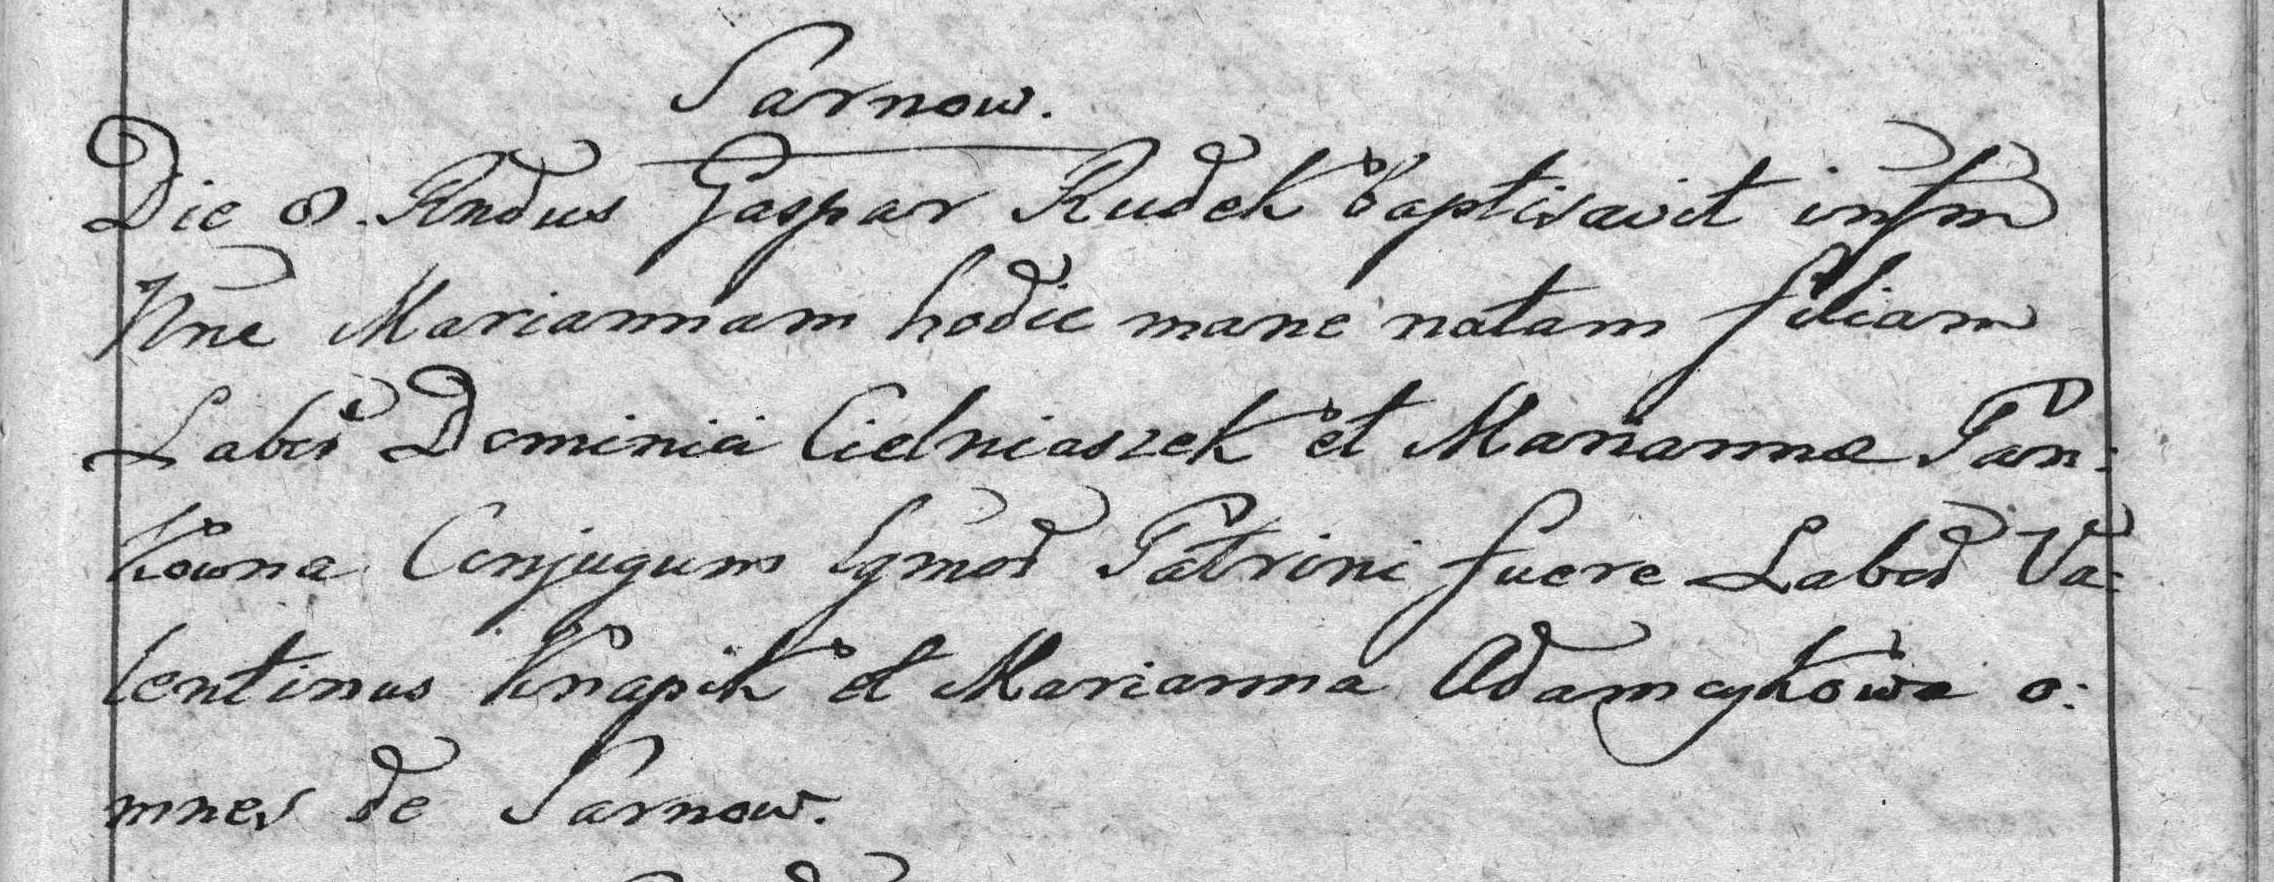 Sarnow.
Die 8. Rndus Gaspar Rudek baptisavit inftm
Nne Mariannam hodie mane natam filiam
Labor Dominici Cielniaszek et Marianna Pan:
kowna Conjugum Lgmor Patrini fuere Labor Va:
lentinus Knapik et Marianna Adamcykowa o:
mnes de Sarnow.